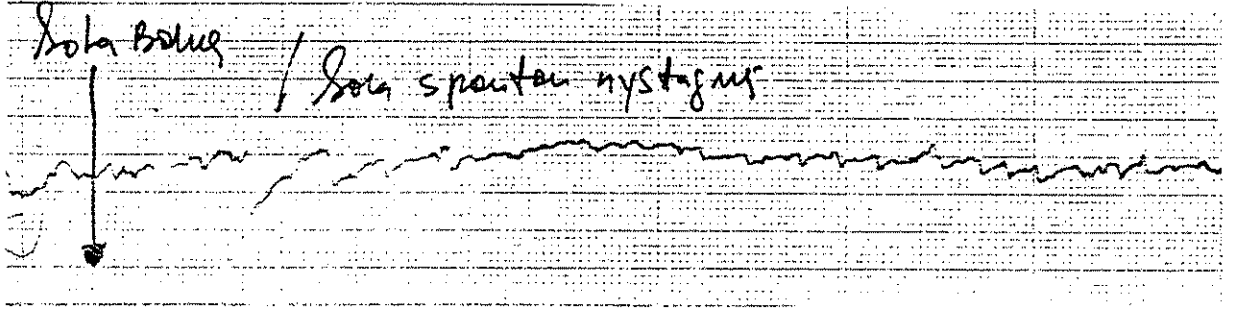 Sola Bakış
/ Sola spontan nystagmus